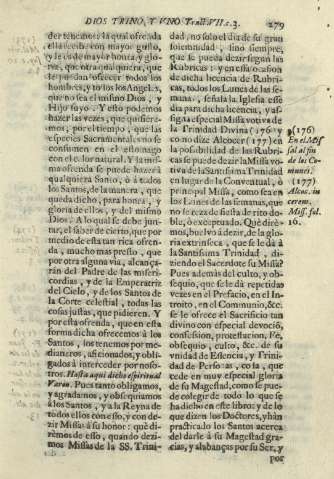 DIOS TRINO, Y VNO Tract. VII c. 3. 279
der tenemos: la qual ofrenda
ella recibe con mayor gusto,
y le es de mayor honra y glo-
ria, que otra ninguna, que
le puedan ofrecer todos los
hombres, y todos los Angeles,
que no sea el mismo Dios, y
Hijo suyo. Y esto podemos
hazer las vezes, que quisiere-
mos, por el tiempo, que las
especies Sacramentales no se
consumen en el estomago
con el calor natural. Y la mis-
ma ofrenda se puede hazer à
qualquiera Santo, ò à todos
los Santos, de la manera, que
queda dicho, para honra, y
gloria dellos, y del mismo
Dios: A lo qual se debe jun-
tar, el saber de cierto, que por
medio de esta tan rica ofren-
da, mucho mas presto, que
por otra alguna via, alcança-
ràn del Padre de las miseri-
cordias, y de la Emperatriz
del Cielo, y de los Santos de
la Corte celestial, todas las
cosas justas, que pidieren. Y
por esta ofrenda, que en esta
forma dicha ofrecemos à los
Santos, los tenemos por me-
dianeros, aficionados, y obli-
gados à interceder por noso-
tros. Hasta aqui dicho espiritual
Varon. Pues tanto obligamos,
y agradamos, y obsequiamos
à los Santos, y a la Reyna de
todos ellos con esso, y con de-
zir Missas à su honor: què di-
rèmos de esso, quando dezi-
mos Missas de la SS. Trini-
dad, no solo el dia de su gran
solemnidad, sino siempre,
que se pueda dezir segun las
Rubricas: y en essa ocasion
de dicha licencia de Rubri-
cas, todos los Lunes de las se-
manas, señala la Iglesia esse
dia para dicha licencia, y as-
signa especial Missa votiva de
la Trinidad Divina (176) y
como dize Alcocer (177) en
la possibilidad de las Rubri-
cas se puede dezir la Missa vo-
tiva de la Santissima Trinidad
en lugar de la Conventual, ò
principal Missa, como sea en
los Lunes de las semanas, que
no se reza de fiesta de rito do-
ble, ò exceptado. Què dirè-
mos, buelvo à dezir, de la glo-
ria extrinseca, que se le dà à
la Santissima Trinidad, di-
ziendo el Sacerdote su Missa?
Pues además del culto, y ob-
sequio, que se le dà repetidas
vezes en el Prefacio, en el In-
troito, en el Communio, &c.
se le ofrece el Sacrificio tan
divino con especial devociõ,
confession, protestacion, Fè,
obsequio, culto, &c. de su
vnidad de Essencia, y Trini-
dad de Personas, cosa, que
cede en muy especial gloria
de su Magestad, como se pue-
de colegir de todo lo que se
ha dicho en este libro; y de lo
que dizen los Doctores, y han
practicado los Santos acerca
del darle à su Magestad gra-
cias, y alabanças por su Ser, y
por
(176)
En el Mis-
sal al fin
de los Co-
munes.
(177)
Alcoc. in
cerem.
Miss. fol.
16.